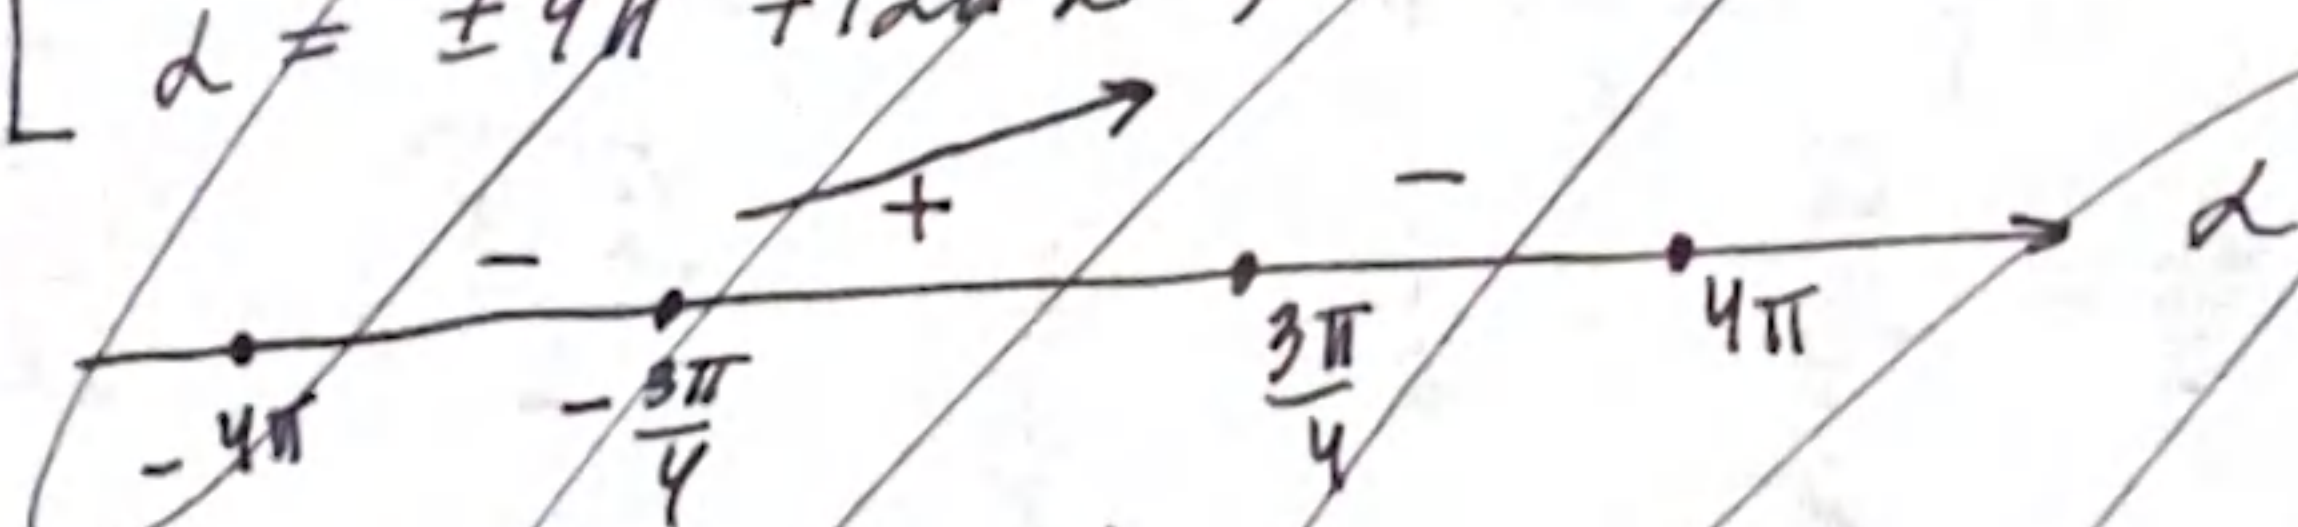 α = ±4π
+
-
-
α
-4π
-3π/4
3π/4
4π